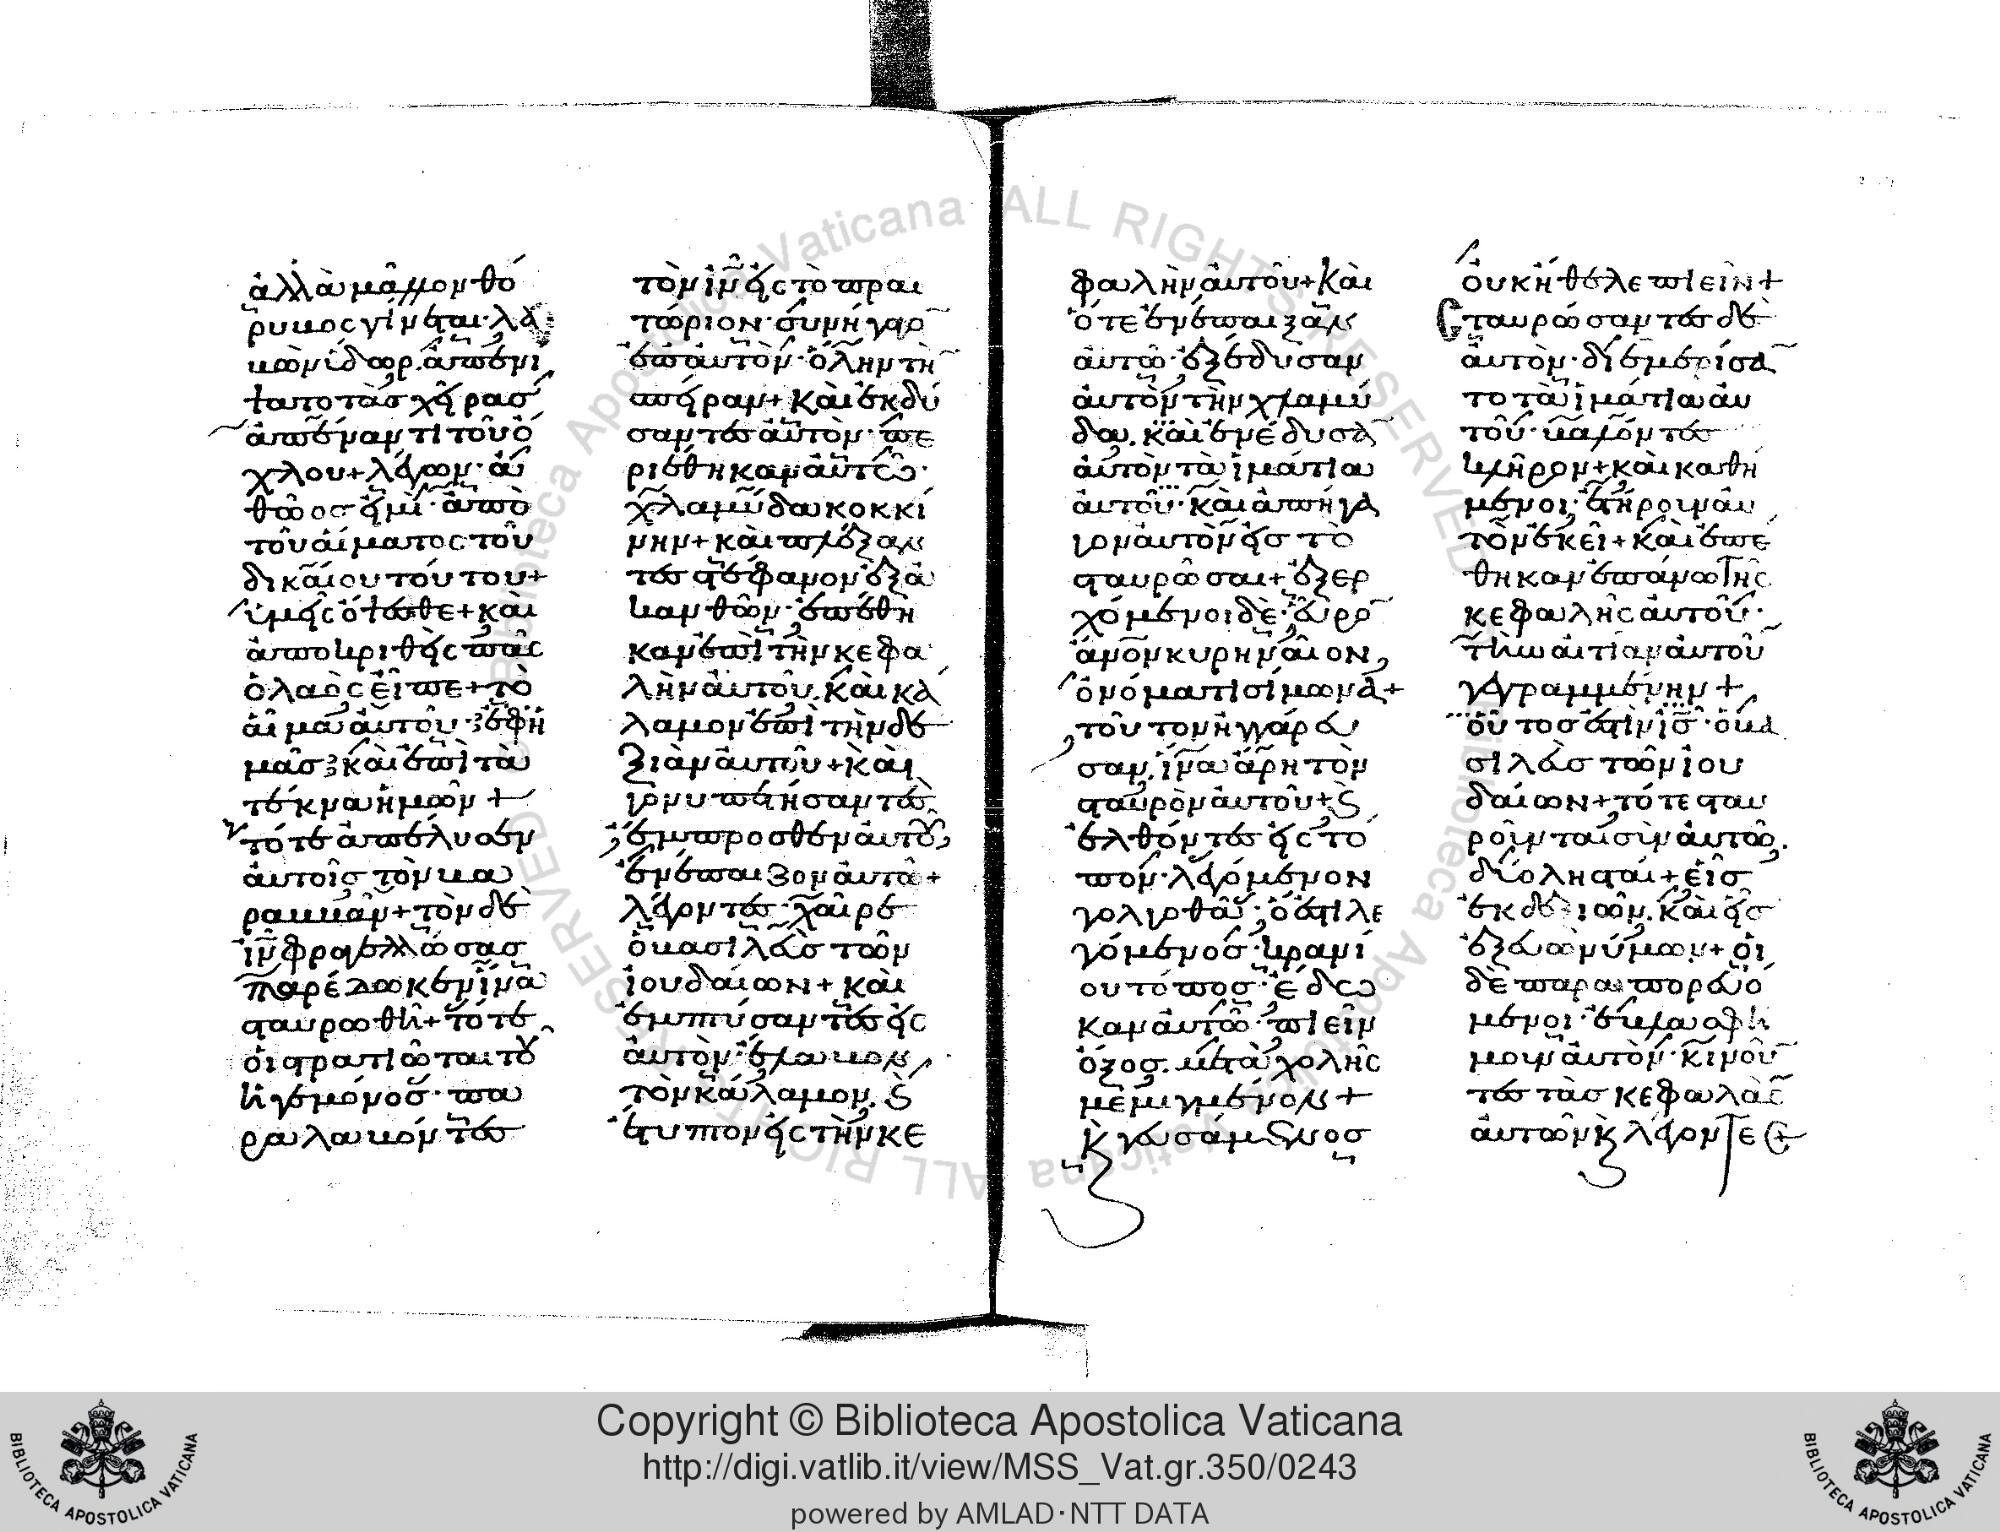 ἀλλὰ μᾶλλον θό
ρυβος γίνεται· λα
βὼν ὕδωρ. ἀπενί
ψατο τὰς χεῖρας
ἀπέναντι τοῦ ὄ
χλου + λέγων· ἀ
θῶος εἰμὶ· ἀπὸ
τοῦ αἵματος τοῦ
δικαίου τούτου +
ὑμεῖς ὄψεσθε + καὶ
ἀποκριθεὶς πᾶς
ὁ λαὸς εἶπε + τὸ
αἷμα αὐτοῦ· ἐφ' ἡ
μᾶς καὶ ἐπὶ τὰ
τέκνα ἡμῶν +
τότε ἀπέλυσεν
αὐτοῖς τὸν βα
ραββᾶν + τὸν δὲ
ἰν φραγελλώσας
παρέδωκεν ἵνα
σταυρωθῆ + τότε
οἱ στρατιῶται τοῦ
ἡγεμόνος· πα
ραλαβόντες
τὸν ἰν εἰς τὸ πραι
τώριον· συνήγαγο
ἐπ' αὐτὸν· ὅλην τὴ
σπεῖραν + καὶ ἐκδύ
σαντες αὐτὸν· πε
ριέθηκαν αὐτῶ·
χλαμύδα κοκκί
νην + καὶ πλέξαν
τες στέφανον ἐξ ἀ
κανθῶν· ἐπέθη
καν ἐπὶ τὴν κεφα
λὴν αὐτοῦ. καὶ κά
λαμον ἐπὶ τὴν δε
ξιὰν αὐτοῦ + καὶ
γονυπετήσαντες
ἔμπροσθεν αὐτοῦ,
ἐνέπαιζον αὐτῶ +
λέγοντες· χαῖρε
ὁ βασιλεὺς τῶν
ἰουδαίων + καὶ
ἐμπτύσαντες εἰς
αὐτὸν· ἔλαβον
τὸν κάλαμον. ϗ
ἔτυπτον εἰς τὴν κε
φαλὴν αὐτοῦ + Καὶ
ὅτε ἐνέπαιξαν
αὐτῶ· ἐξέδυσαν
αὐτὸν τὴν χλαμύ
δα. καὶ ἐνέδυσα
αὐτὸν τὰ ἱμάτια
αὐτοῦ· καὶ ἀπήγα
γον αὐτὸν εἰς τὸ
σταυρῶσαι + ἐξερ
χόμενοι δὲ· εὗρο
ἄνον κυρηναῖον,
ὀνόματι σίμωνα +
τοῦτον ἠγγάρευ
σαν, ἵνα ἄρη τὸν
σταυρὸν αὐτοῦ + ϗ
ἐλθόντες εἰς τό
πον· λεγόμενον
γολγοθᾶ· ὅ ἐστι λε
γόμενος· κρανί
ου τόπος· ἔδω
καν αὐτῶ· πιεῖν
ὄξος. μετὰ χολῆς
μεμιγμένον +
κ γευσάμενος
οὐκ ἤθελε πιεῖν +
Σταυρώσαντες δὲ
αὐτὸν· διεμερίσα
το τὰ ἱμάτια αὐ
τοῦ· βαλόντες
κλῆρον + καὶ καθή
μενοι· ἐτήρουν αὐ
τὸν ἐκεῖ + καὶ ἐπέ
θηκαν ἐπάνω τῆς
κεφαλῆς αὐτοῦ·
τὴν αἰτίαν αὐτοῦ
γεγραμμένην +
οὗτος ἐστὶν ἰς· ὁ βα
σιλεὺς τῶν ἰου
δαίων + τότε σταυ
ροῦνται σὺν αὐτῶ,
δύο λησταί + εἷς
ἐκ δεξιῶν, καὶ εἷς
ἐξ εὐωνύμων + οἱ
δὲ παραπορευό
μενοι· ἐβλασφή
μουν αὐτὸν· κινοῦ
τες τὰς κεφαλὰς
αὐτῶν κ λέγοντες +
Copyright © Biblioteca Apostolica Vaticana
http://digi.vatlib.it/view/MSS_Vat.gr.350/0243
powered by AMLAD·NTT DATA
BIBLIOTECA APOSTOLICA VATICANA
BIBLIOTECA APOSTOLICA VATICANA